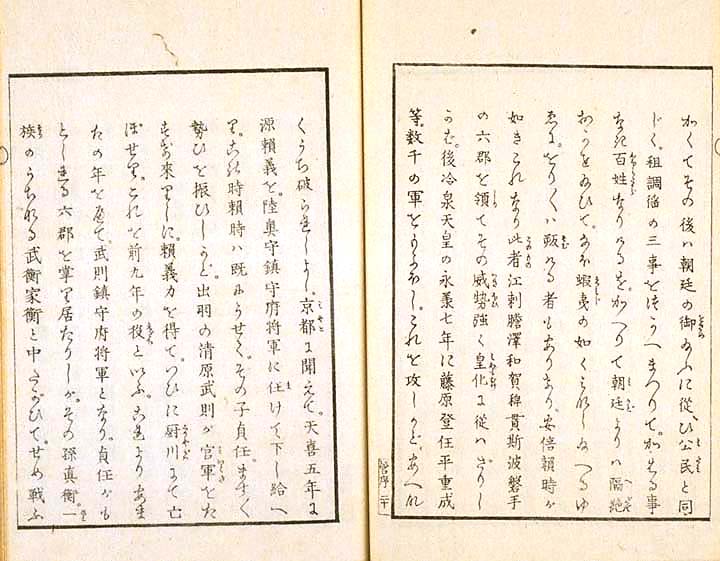 かくてその後ハ朝廷の御に従ひ公民と同
じく。租調傜の三事をつかへまつりて。かゝる事
なき百姓なりけるを。かへりて朝廷よりハ隔絶
て。なほ蝦夷の如く
ゑに。をり〳〵ハ叛ける者もありけり。安倍頼時が
如きこれなり此者江刺膽澤和賀稗貫斯波磐手
の六郡を領てその威勢強く皇化に従ハざりし
かば。後冷泉天皇の永承七年に藤原登任平重成
等。数千の軍をもよほし。これを攻しかど。あへな
序 二十
くうち破られしよし。京都に聞えて。天喜五年に
源頼義を。陸奥守鎮守府将軍に任けて下し給へ
り。この時頼時ハ既にうせて。その子貞任。ますます
勢ひを振ひしかど。出羽の清原武則が官軍をた
すけ來りしに。頼義力を得て。つひに厨川にて亡
ぼせり。これを前九年の役といふ。これよりあま
たの年を歴て。武則鎮守府将軍となり。貞任がも
としれる六郡を掌り居たりしが。その孫真衡。一
族のうちなる武衡家衡と中たがひて。せめ戦ふ